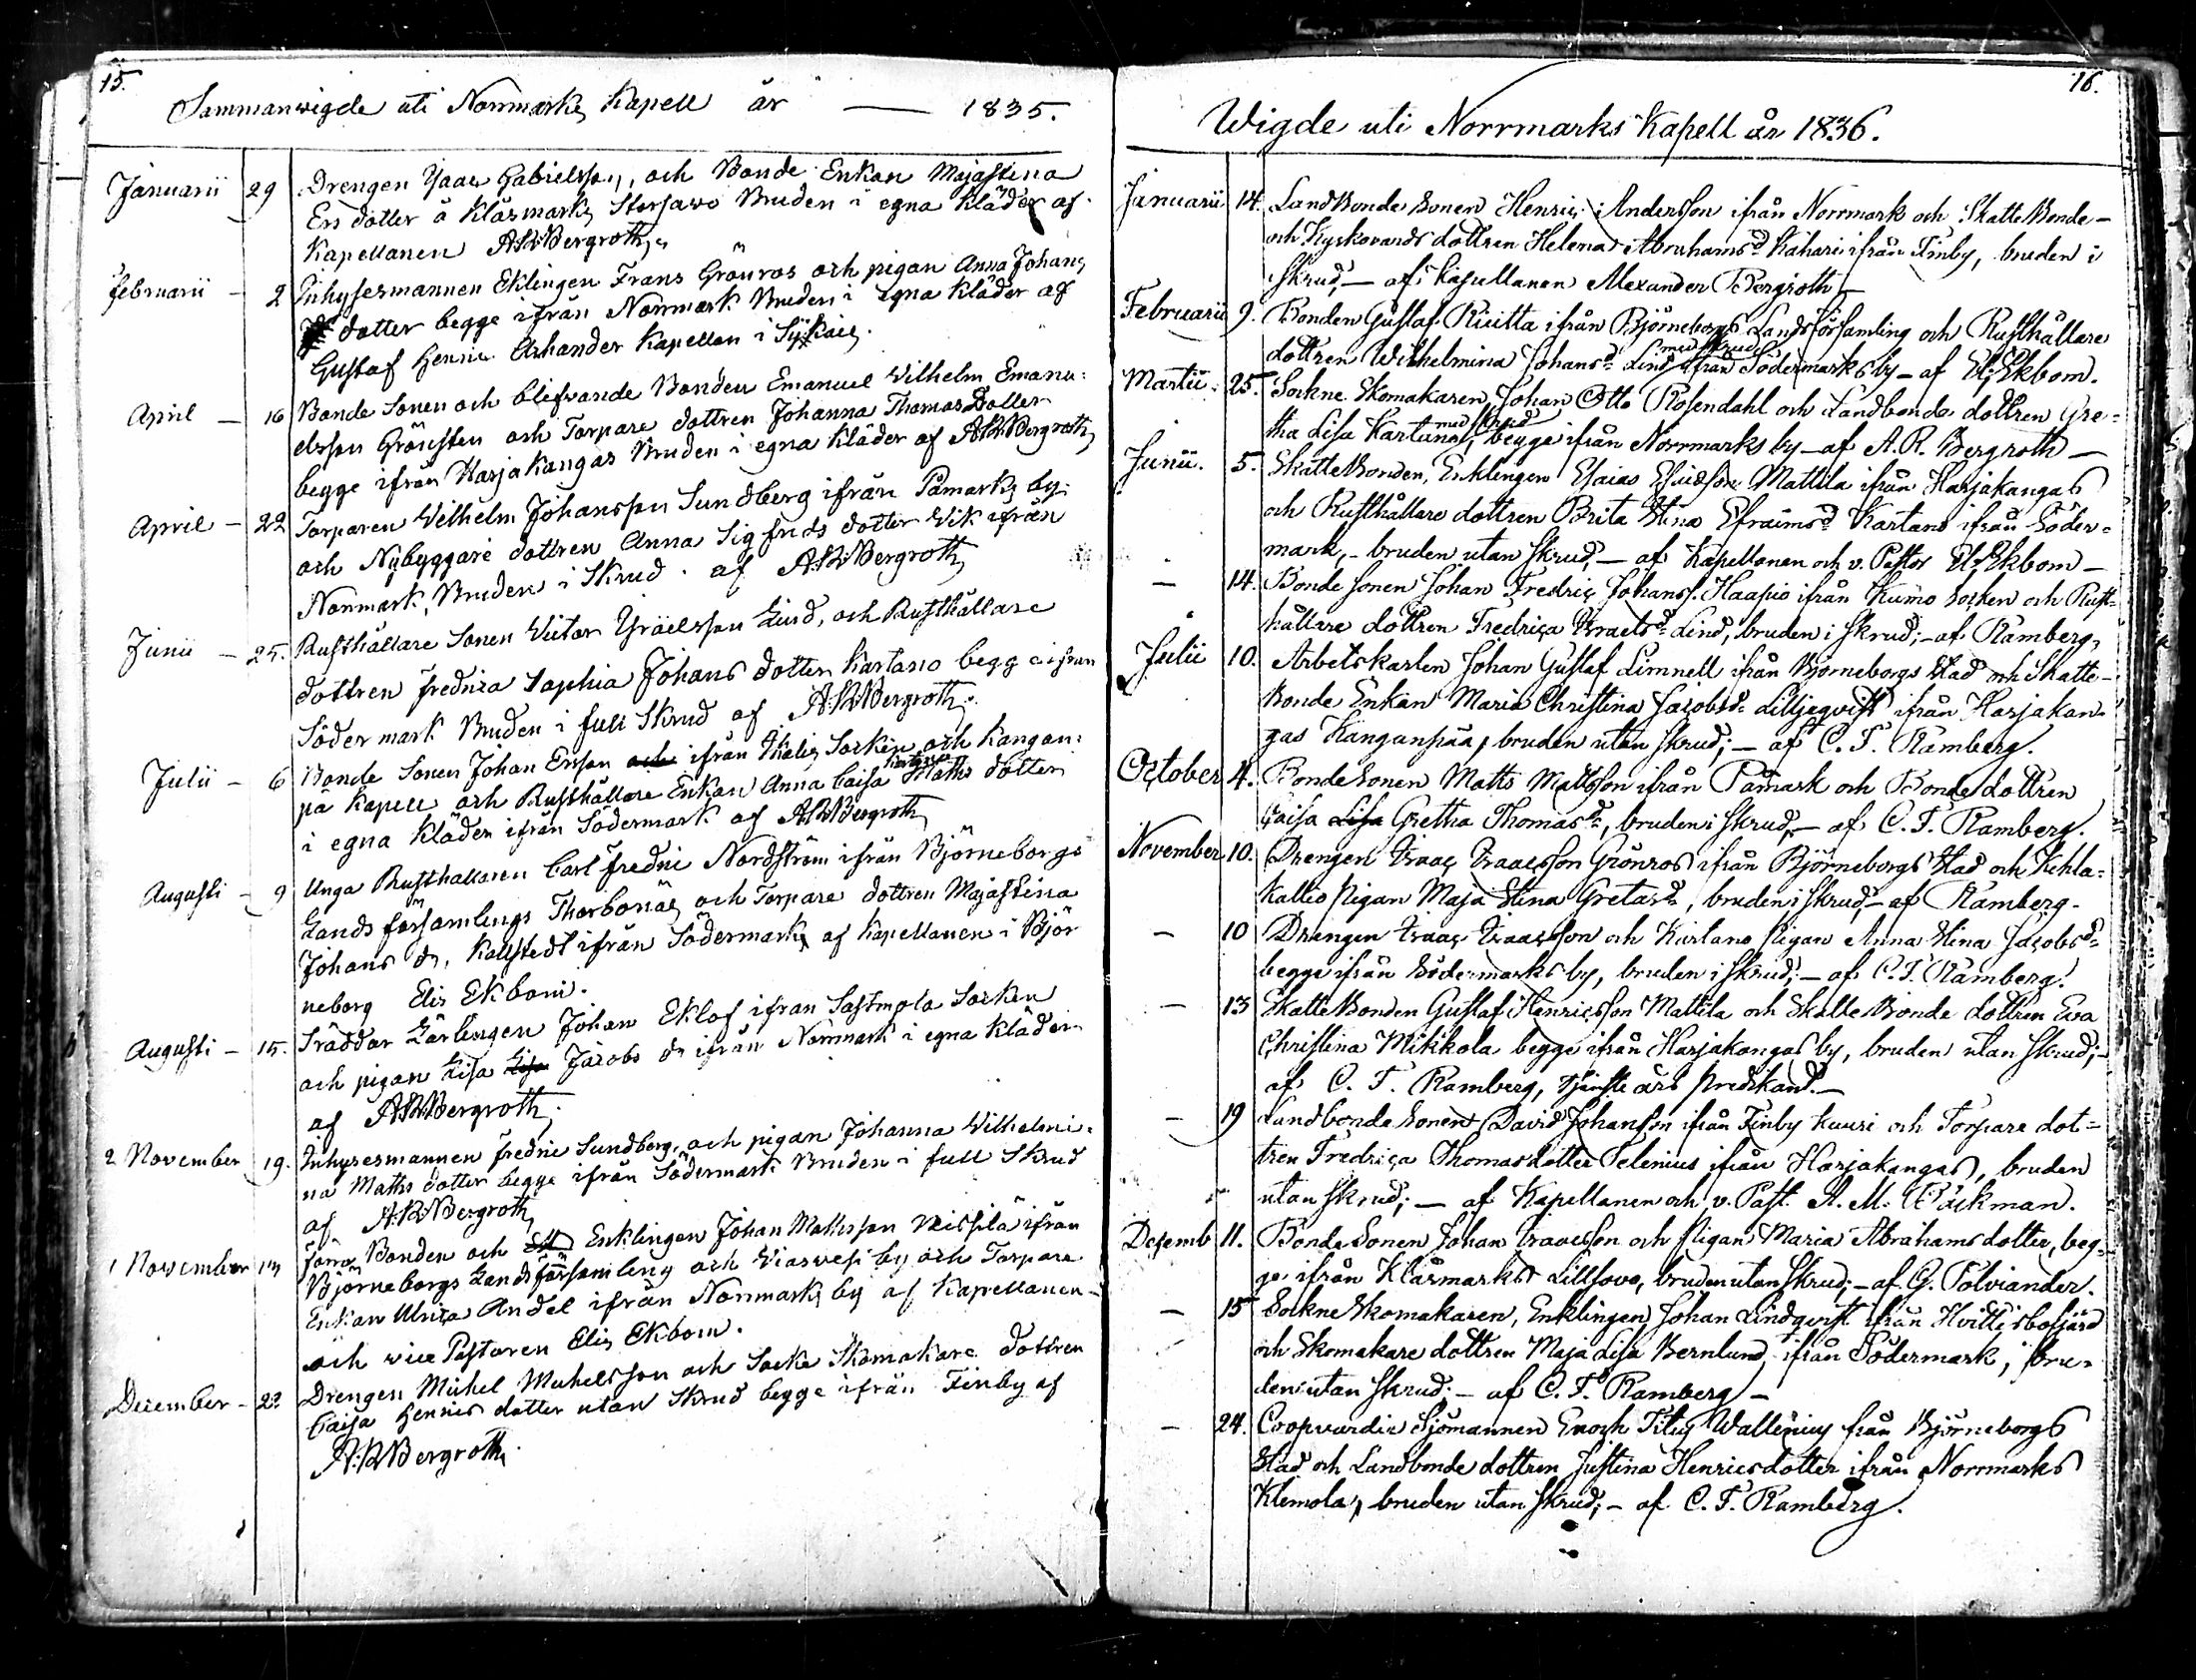 15.
Sammanvigde uti Norrmarks Kapell år — 1835.
Januarii 29 Drengen Isaac Gabrielsson, och Bonde Enkan Majastina
Ers dotter å Klåsmarks Storsawo Bruden i egna Kläder af
Kapellanen A.R. Bergroth,
Februarii - 2 Inhysesmannen Eklingen Frans Grönros och pigan Anna Johans
dotter begge ifrån Norrmark Bruden i egna Kläder af
Gustaf Henric Kapellan i
April - 16 Bonde Sonen och blifvande Bonden Emanuel Vilhelm Emanu-
elsson Grönsten och Torpare dottren Johanna Thomas Dotter
begge ifrån Harjakangas Bruden i egna Kläder af A.R. Bergroth
April - 22 Torparen Vilhelm Johansson Sundberg ifrån Påmarks by
och Nybyggare dottren Anna Sigfrids dotter Vik ifrån
Norrmark, Bruden i Skrud. af A.R. Bergroth,
Junii - 25. Rusthållare Sonen Victor Israelsson Lind, och Rusthållare
dottren Fredrica Sophia Johans dotter Kartano begge ifrån
Södermark Bruden i full Skrud af A.R. Bergroth.
Julii - 6 Bonde Sonen Johan Ersson och ifrån Socken och Kangan-
pä Kapell och Rusthållare Enkan Anna Caisa Maths dotter
i egna Kläder ifrån Södermark af A.R. Bergroth
Augusti - 9 Unga Rusthållaren Carl Fredric Nordström ifrån Björneborgs
Lands församlings Thorbonäs och Torpare dottren Majastina
Johans dr, Kallstedt ifrån Södermark af Kapellanen i Björ
neborg Elis Ekbom.
Augusti - 15. Sräddar Lärlingen Johan Eklof ifrån Sastmola Socken
och pigan Lisa Lisa Jacobs dr ifrån Norrmark i egna Kläder
af A.R. Bergroth.
2 November 19. Inhysesmannen Fredric Sundberg, och pigan Johanna Wilhelmi-
na Maths dotter begge ifrån Södermark Bruden i full Skrud
af A.R. Bergroth,
1 November 13 förra Bonden och Enklingen Johan Mathsson Nissilä ifrån
Björneborgs Landsförsamling och Wiaswesi by och Torpare
Enkan Ulrica Andel ifrån Norrmarks by af Kapellanen
och vice Pastoren Elis Ekbom.
December - 22 Drengen Michel Michelsson och Socke Skomakare dottren
Caisa Henrics dotter utan Skrud begge ifrån Finby af
A.R. Bergroth.
16.
Wigde uti Norrmarks Kapell år 1836.
Januarii 14. LandBonde Sonen Henric Andersson ifrån Norrmark och SkatteBonde-
och Kyrkovards dottren Helena Abrahamsdr Kahari ifrån Finby, bruden i
Skrud; — af Kapellanen Alexander Bergroth —
Februarii 9. Bonden Gustaf Ruitta ifrån Björneborgs Landsförsamling och Rusthållare
med skrud
dottren Wilhelmina Johansdr Lind ifrån Södermarks by — af El: Ekbom.
Martii 25. Sockne Skomakaren Johan Otto Rosendahl och Landbonde dottren Gre-
med skrud
tha Lisa Kartano, begge ifrån Norrmarks by — af A.R. Bergroth —
Junii. 5. SkatteBonden, Enklingen Esaias Esaidson Mattila ifrån Harjakangas
och Rusthållare dottren Brita Stina Efraimsdr Kartano ifrån Söder-
mark, - bruden utan skrud, — af Kapellanen och v. Pastor El: Ekbom —
— 14. Bonde Sonen Johan Fredric Johanss. Haapio ifrån Kumo Socken och Rust-
hållare dottren Fredrica Israelsdr Lind, bruden i skrud; — af Ramberg,
Julii 10. Arbetskarlen Johan Gustaf Limnell ifrån Björneborgs Stad och Skatte-
Bonde Enkan Maria Christina Jacobsdr Lilljeqvist ifrån Harjakan-
gas Kanganpää, bruden utan skrud; — af C. F. Ramberg.
October 4. BondeSonen Matts Mattsson ifrån Påmark och Bonde dottren
Caisa Lisa Gretha Thomasdr, bruden i skrud, — af C. F. Ramberg.
November 10. Drengen Isaac Isaacsson Grönros ifrån Björneborgs Stad och Kehla-
kallio pigan Maja Stina Gretasdr, bruden i skrud, — af Ramberg.
— 10 Drengen Isaac Isaacsson och Kartano pigan Anna Stina Jacobsdr
begge ifrån Södermarks by, bruden i skrud; — af C. F. Ramberg.
— 13 SkatteBonden Gustaf Henricsson Mattila och SkatteBonde dottren Eva
Christina Mikkola begge ifrån Harjakangas by, bruden utan skrud; —
af C. F. Ramberg, tjenste års predikand. —
— 19 Landbonde Sonen David Johansson ifrån Finby Kuuri och Torpare dot-
tren Fredrica Thomasdotter Selenius ifrån Harjakangas, bruden
utan skrud; — af Kapellanen och v. Past. A. M. Bäckman.
Decemb 11. BondeSonen Johan Isaacsson och pigan Maria Abrahamsdotter, beg-
ge ifrån Klåsmarks Lillsovo, bruden utan skrud; — af G. Polviander.
— 15 Sockne Skomakaren, Enklingen Johan Lindqvist ifrån Hvittisbofjärd
och Skomakare dottren Maja Lisa Bernlund, ifrån Södermark, bru-
den utan skrud; — af C. F. Ramberg —
— 24. Coopvardie Sjömannen Enoch Titus Wallenius från Björneborgs
Stad och Landbonde dottren Justina Henricsdotter ifrån Norrmarks
Klemola, bruden utan skrud; — af C. F. Ramberg.